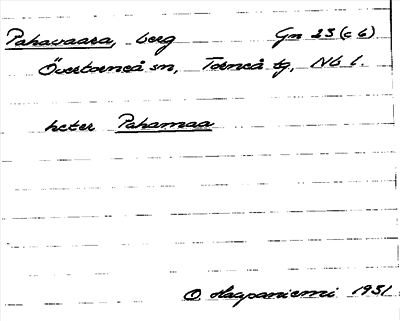 Pahavaara, berg Gn 23 (c 6)
Övertorneå sn, Torneå tg, Nb l.
heter Pahamaa
O Haapaniemi 1931